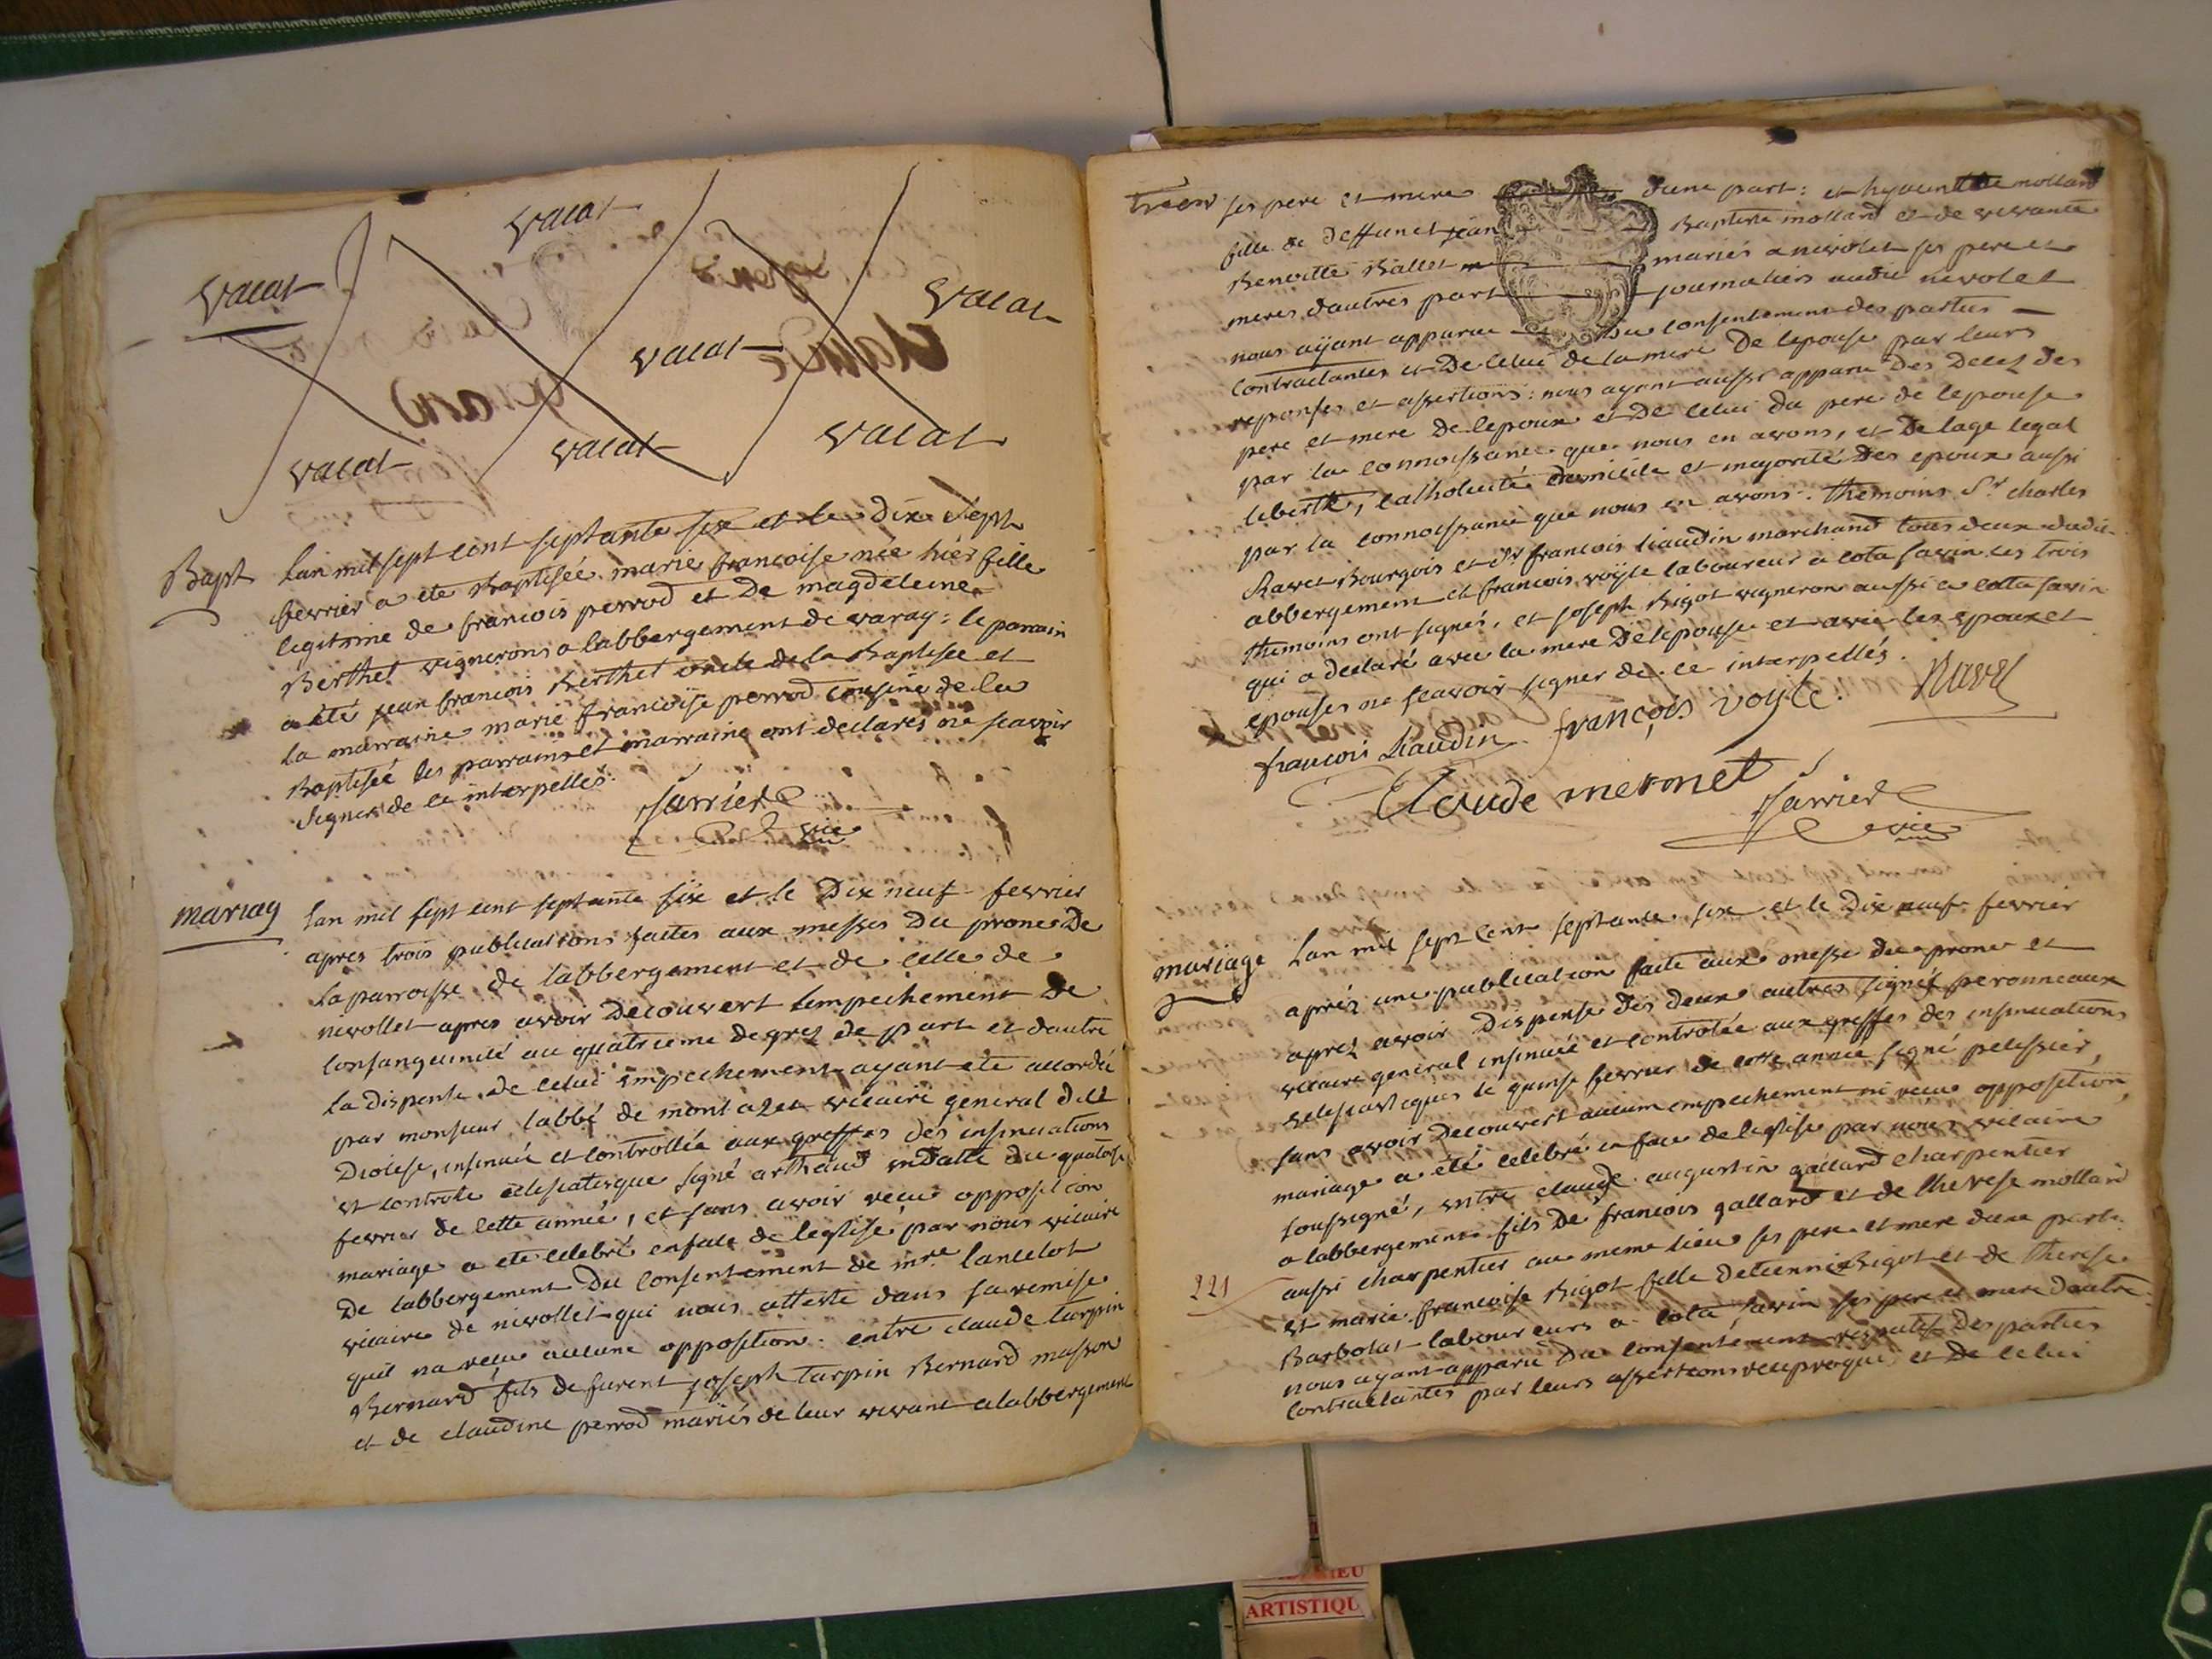 vacat
vacat
vacat
vacat
vacat
vacat
vacat
Bapt
Lan mil sept cent septante six et le dix sept
fevrier a ete Baptisée marie francoise née hier fille
legitime de francois perrod et De magdeleine
Berthet vignerons a labbergement de varay: le parrain
a été jean francois Berthet oncle de la Baptisée et
la marraine marie francoise perrod cousine de la
Baptisée les parrains et marraine ont declarés ne scavoir
signer de ce interpellés.
Sarriet
vic
mariag
Lan mil sept cent septante six et le Dix neuf fevrier
apres trois publications faites aux messes Du prone De
la parroisse de labbergement et de celle de
nivollet apres avoir Decouvert lempechement De
consanguinité au quatrieme degrez de part et dautre
la dispense de celui empechement ayant ete accordée
par monsieur labbé de montazet vicaire general dud
Diocese, insinuée et controllée aux greffes des insinuations
et controle eclesiatisque signé arthaud en datte du quatorse
fevrier de cette année, et sans avoir recue opposition
mariage a ete celebré en face de leglise par nous vicaire
De labbergement Du consentement de mre lancelot
vicaire de nivollet qui nous atteste dans sa remise
quil na recue aucune opposition: entre claude turpin
Bernard fils de furent joseph turpin Bernard masson
et de claudine perrod mariés de leur vivant a labbergement
ses pere et mere dune part: et hyacinthe mollard
fille de Deffunct jean Baptiste mollard et de vivante
Benoitte Ballet mariés a nivolet ses pere et
meres dautres part journaliers audit nivolet
nous ayant apparue Du consentement des parties
contractantes et De celui de la mere De lepouse par leurs
reponses et assertions: nous ayant aussi apparu Des Decez des
pere et mere De lepoux et De celui du pere de lepouse
par la connoissance que nous en avons, et De lage legal
liberté, catholicité domicile et majorité Des epoux aussi
par la connoissance que nous en avons. themoins Sr charles
Ravet Bourgois et Sr francois Liaudin marchand tous deux dudit
abbergement et francois voyle laboureur a cota savin les trois
themoins ont signés, et joseph Bigot vigneron aussi a cotta savin
qui a declaré avec la mere De lepouse et avec les epoux et
epouses ne scavoir signer de ce interpellés.
françois Liaudin françois voyle. Ravet
Claude mermet
Sarriet
vic
mariage
Lan mil sept cent septante six et le Dix neuf fevrier
aprés une publication faite aux messe du prone et
aprez avoir Dispense Des Deux autres signé peronneaux
vicaire general insinuée et controlée aux greffes des insinuations
eclesiastiques le quinse fevrier de cette année signé pelissier,
sans avoir Decouvert aucun empechement ni recue opposition,
mariage a été celebré en face de leglise par nous vicaire
soussigné, entre claude augustin gallard charpentier
a labbergement fils De francois gallard et de therese mollard
aussi charpentier au meme lieu ses pere et mere dune part:
221
et marie francoise Bigot fille detienne Bigot et de therese
Barbolat laboureurs a cota savin ses pere et mere Dautre:
nous ayant apparu Du consentement respectif Des parties
contractantes par leurs assertions reciproque, et De celui
ARTISTIQU